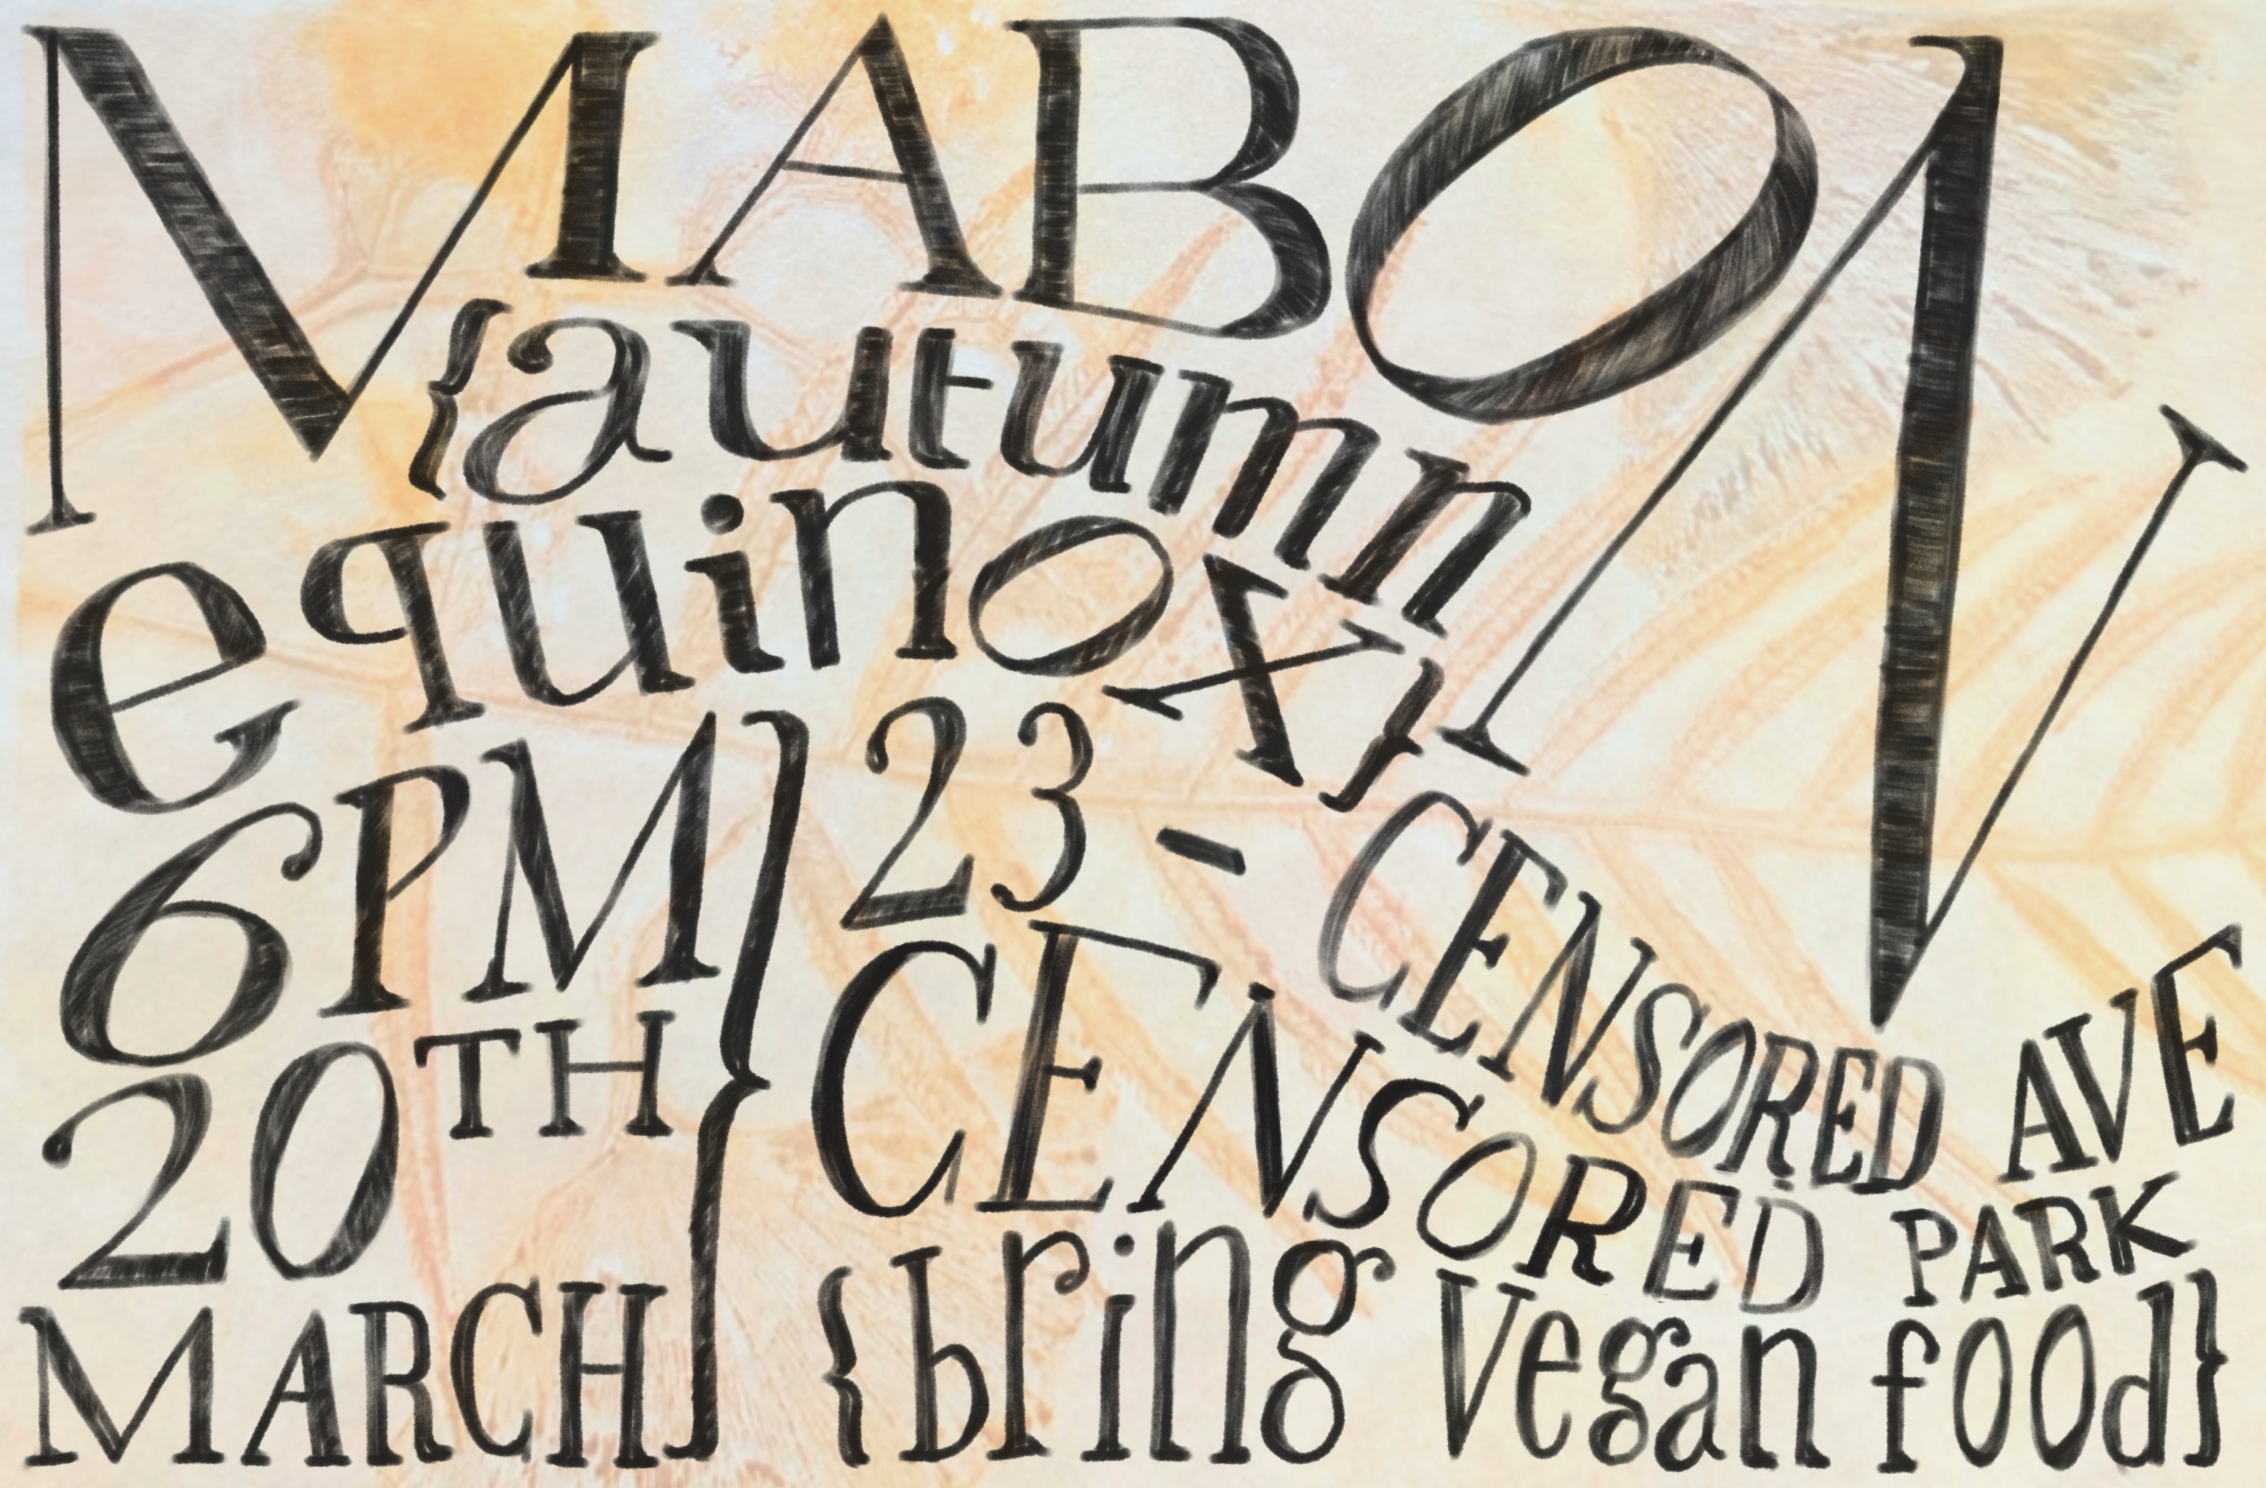 MABON
{autumn
equinox}
6PM
20TH
MARCH
23 - CENSORED AVE
CENSORED PARK
{bring vegan food}